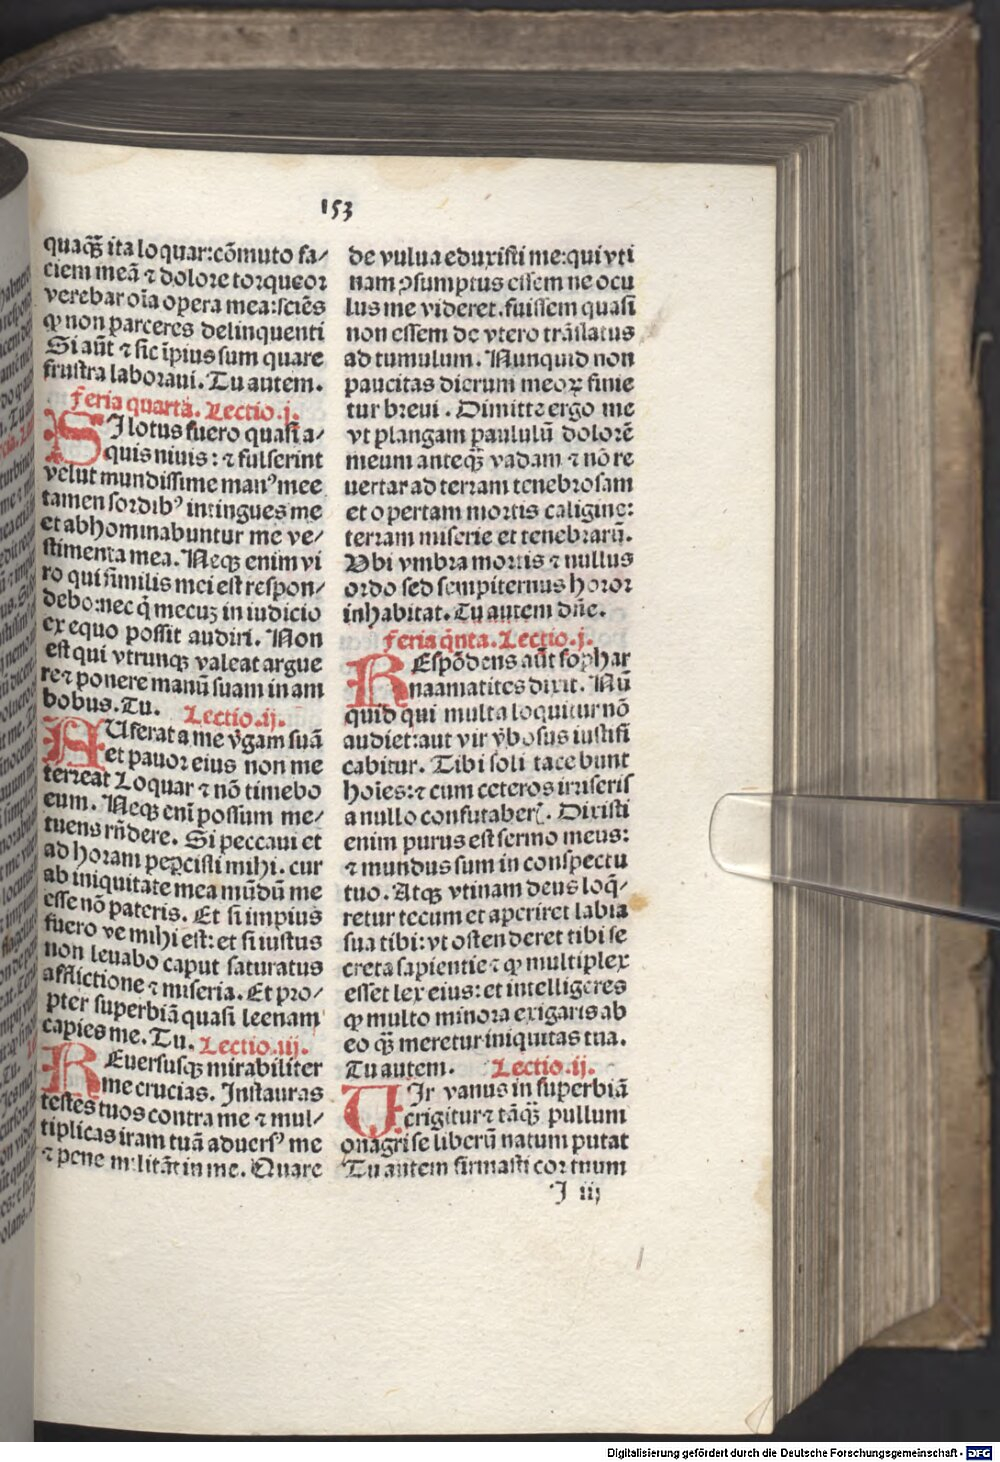 153
quaq̄ʒ ita loquar:cõmuto fa/
ciem meã ⁊ dolore torqueor
verebar oĩa opera mea:sciẽs
ꝙ non parceres delinquenti
Si aũt ⁊ sic ĩpius sum quare
frustra laboraui. Tu autem.
feria quarta. Lectio.j.
SI lotus fuero quasi a/
quis niuis: ⁊ fulserint
velut mundissime manꝰ mee
tamen sordibꝰ intingues me
et abhominabuntur me ve/
stimenta mea. Neqʒ enim vi
ro qui similis mei est respon/
debo:nec q̃ mecuʒ in iudicio
ex equo possit audiri. Non
est qui vtrunqʒ valeat argue
re ⁊ ponere manũ suam in am
bobus. Tu. Lectio.ij.
AUferat a me v̾gam suã
et pauor eius non me
terreat Loquar ⁊ nõ timebo
eum. Neqʒ enĩ possum me/
tuens rñdere. Si peccaui et
ad horam peꝑcisti mihi. cur
ab iniquitate mea mũdũ me
esse nõ pateris. Et si impius
fuero ve mihi est: et si iustus
non leuabo caput saturatus
afflictione ⁊ miseria. Et pro/
pter superbiã quasi leenam
capies me. Tu. Lectio.iij.
REuersusqʒ mirabiliter
me crucias. Instauras
testes tuos contra me ⁊ mul/
tiplicas iram tuã aduersꝰ me
⁊ pene militãt in me. Quare
de vulua eduxisti me:qui vti
nam ꝯsumptus essem ne ocu
lus me videret. fuissem quasi
non essem de vtero trãslatus
ad tumulum. Nunquid non
paucitas dierum meoꝝ finie
tur breui . Dimitte ergo me
vt plangam paululũ dolorẽ
meum anteq̄ʒ vadam ⁊ nõ re
uertar ad terram tenebrosam
et opertam mortis caligine:
terram miserie et tenebrarũ.
Vbi vmbra mortis ⁊ nullus
ordo sed sempiternus horor
inhabitat. Tu autem dñe.
feria q̃nta. Lectio.j.
REspõdens aũt sophar
naamatites dixit. Nũ
quid qui multa loquitur nõ
audiet:aut vir v̾bosus iustifi
cabitur. Tibi soli tacebunt
hoĩes:⁊ cum ceteros irriseris
a nullo confutaberꝭ. Dixisti
enim purus est sermo meus:
⁊ mundus sum in conspectu
tuo. Atqʒ vtinam deus loq̃/
retur tecum et aperiret labia
sua tibi:vt ostenderet tibi se
creta sapientie ⁊ ꝙ multiplex
esset lex eius: et intelligeres
ꝙ multo minora exigaris ab
eo q̄ʒ meretur iniquitas tua.
Tu autem. Lectio.ij.
VIr vanus in superbiã
erigitur ⁊ tãq̄ʒ pullum
onagri se liberũ natum putat
Tu autem firmasti cor tuum
I iij
Digitalisierung gefördert durch die Deutsche Forschungsgemeinschaft - DFG